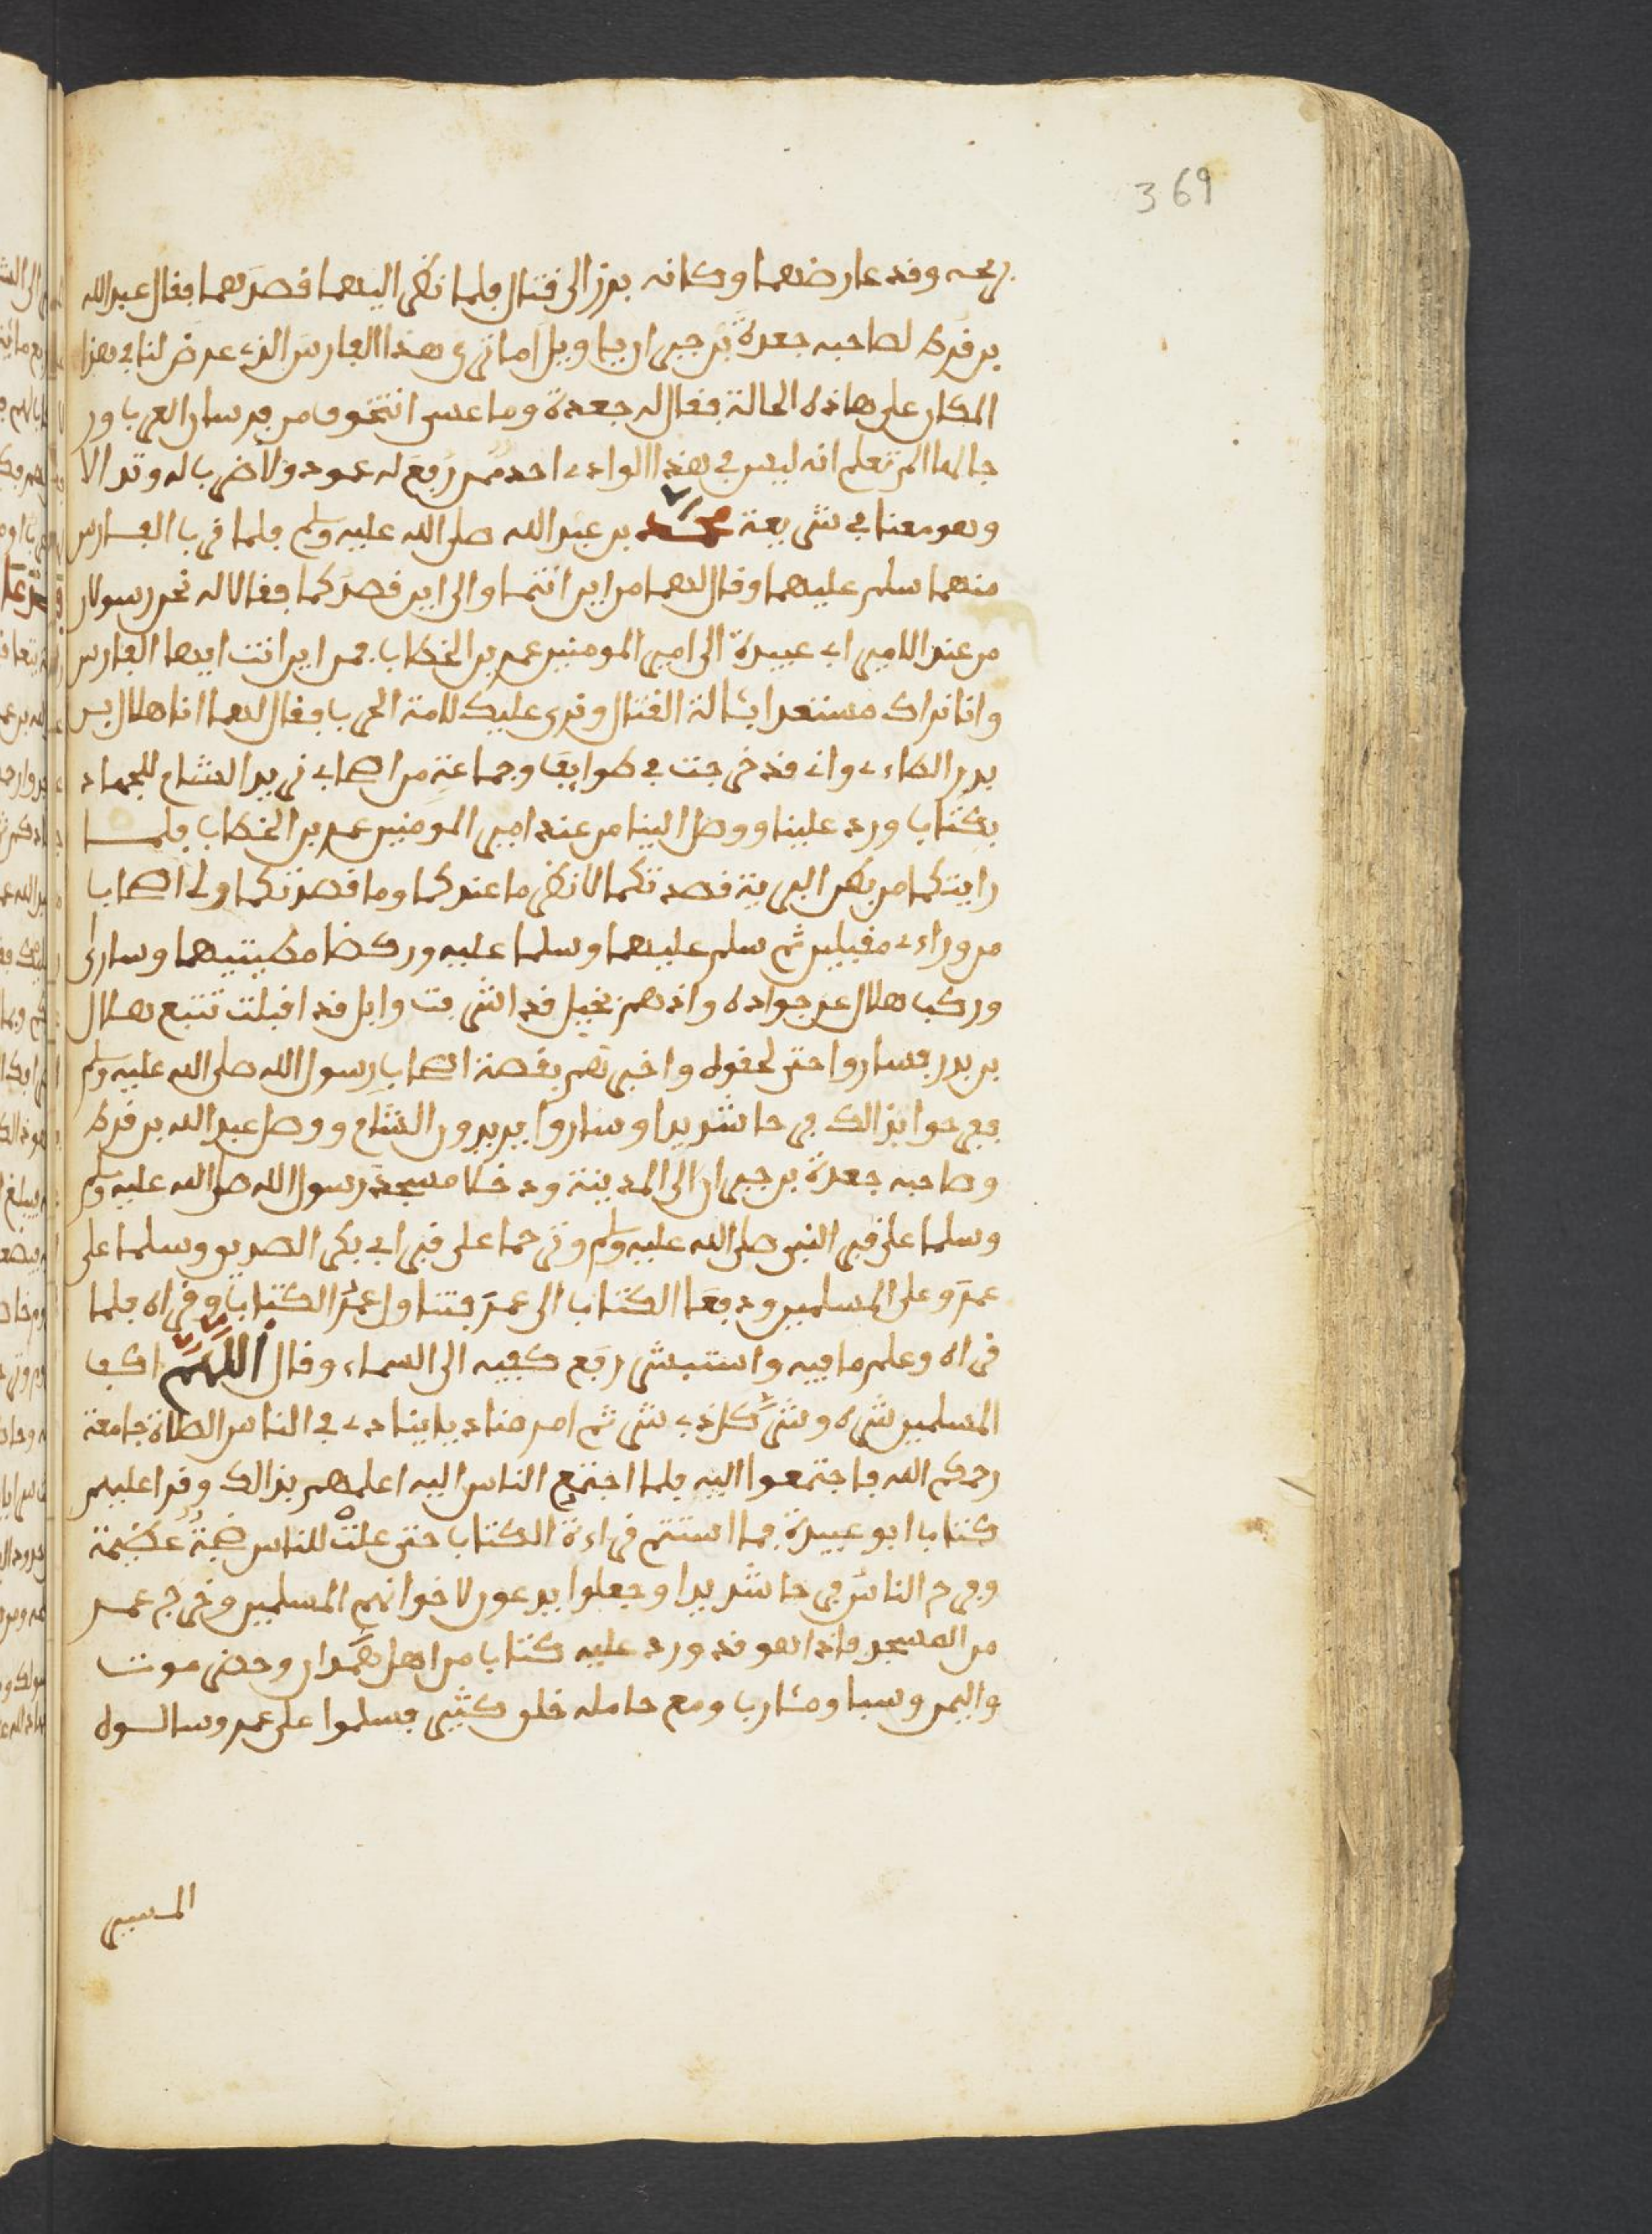 369
رمحه وقد عارضهما وكانه برز الى قتال فلما نظر اليهما قصدهما فقال عبد الله
بن قرط لصاحبه جعدة بن جبير اريا ويل اما ترى هذا الفارس الذي عرض لنا في هذا
المكان على هاذه الحالة فقال له جعدة وما عسى ان تتخوف من فرسان العرب اور
جالها الم تعلم انه ليس في هذا الوادي احد ممن رفع له عمود ولا ضرب له وتد الا
وهو معنا في شريعة محمد بن عبد الله صلى الله عليه وسلم فلما قرب الفارس
منهما سلم عليهما وقال لهما من اين انتما والى اين قصدكما فقالا له نحن رسولان
من عند الامير ابي عبيدة الى امير المومنين عمر بن الخطاب فمن اين انت ايها الفارس
وانا نراك مستعدا بئالة القتال ونرى عليك لامة الحرب فقال لهما انا هلال بن
بدر الطاءي واني قد خرجت في طوايف وجماعة من اصحابي نريد الشام للجهاد
بكتاب ورد علينا ووصل الينا من عند امير المومنين عمر بن الخطاب فلما
رايتكما من بطن البرية قصدتكما لانظر ما عندكما وما قصدتكما ولي اصحاب
من وراءي مقبلين ثم سلم عليهما وسلما عليه وركضا مطيتيهما وسارا
وركب هلال على جواده واذ هم بخيل قد اشرفت وابل قد اقبلت تتبع هلال
بن بدر فساروا حتى لحقوه واخبرهم بقصة اصحاب رسول الله صلى الله عليه وسلم
ففرحوا بذالك فرحا شديدا وساروا يريدون الشام ووصل عبد الله بن قرط
وصاحبه جعدة بن جبير الى المدينة ودخلا مسجد رسول الله صلى الله عليه وسلم
وسلما على قبر النبي صلى الله عليه وسلم وترحما على قبر ابي بكر الصديق وسلما على
عمر وعلى المسلمين ودفعا الكتاب الى عمر فتناول عمر الكتاب وقراه فلما
قراه وعلم ما فيه واستبشر رفع كفيه الى السماء وقال اللهم اكف
المسلمين شره وشر كل ذي شر ثم امر مناديا ينادي في الناس الصلاة جامعة
رحمكم الله فاجتمعوا اليه فلما اجتمع الناس اليه اعلمهم بذالك وقرا عليهم
كتاب ابو عبيدة فما استتم قراءة الكتاب حتى علت للناس ضجة عظيمة
وفرح الناس فرحا شديدا وجعلوا يدعون لاخوانهم المسلمين وخرج عمر
من المسجد فاذا هو قد ورد عليه كتاب من اهل همدان وحضرموت
واليمن وسبا ومئارب ومع حامله خلق كثير فسلموا على عمر وسالوه
المسير